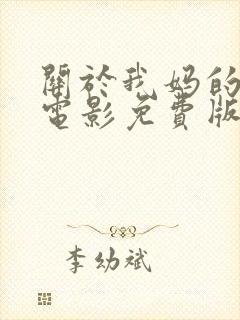 關於我媽的
電影免費版
李幼斌